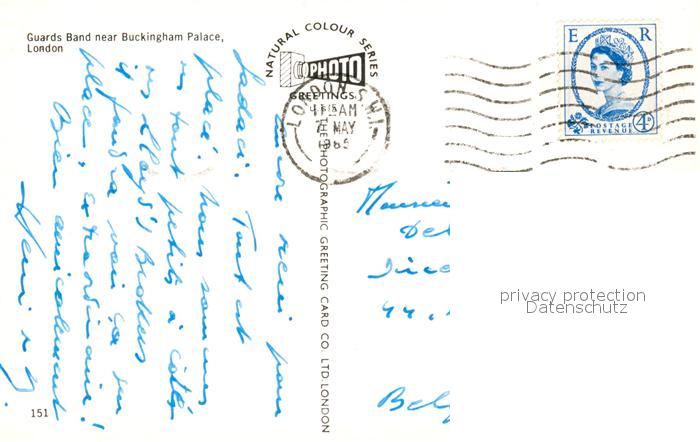 Guards Band near Buckingham Palace,
London
NATURAL COLOUR SERIES
PHOTO
GREETINGS
THE PHOTOGRAPHIC GREETING CARD CO. LTD. LONDON
LONDON S.W.1
11 15 AM
7 MAY
1965
E R
POSTAGE
REVENUE
4D
encore merci pour
Tout est
placé. Nous sommes
tout petits à côté
Lloyd's Brokers
Il faudra voir ça sur
place, extraordinaire!
Bien amicalement
Henri
Monsieu
De
Dire
44,
Belg
privacy protection
Datenschutz
151